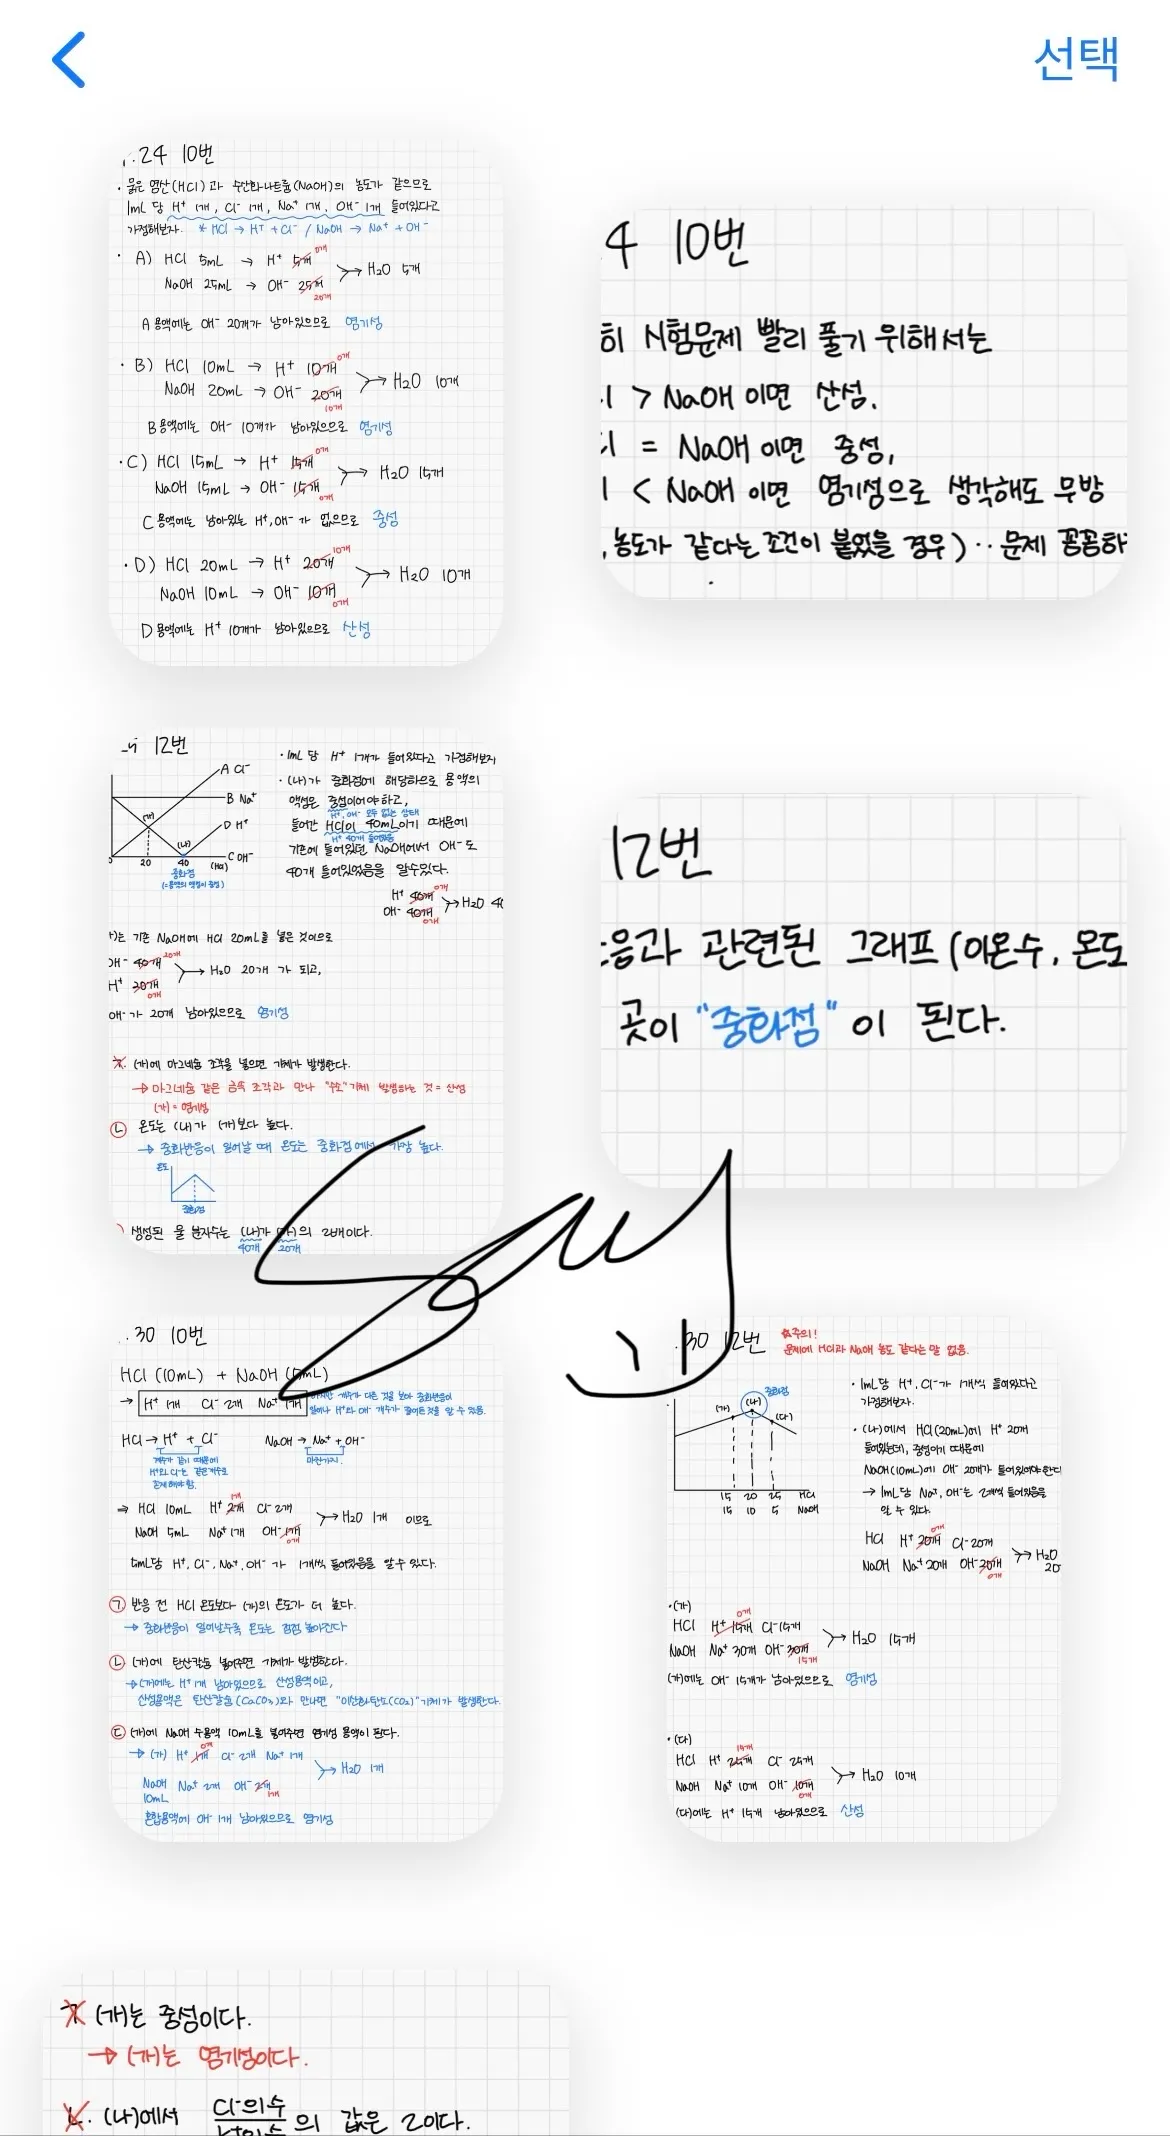 선택
.24 10번
· 묽은 염산(HCl)과 수산화나트륨(NaOH)의 농도가 같으므로
1mL 당 H⁺ 1개, Cl⁻ 1개, Na⁺ 1개, OH⁻ 1개 들어있다고
가정해보자. * HCl → H⁺ + Cl⁻ / NaOH → Na⁺ + OH⁻
· A) HCl 5mL → H⁺ 5개 0개
NaOH 25mL → OH⁻ 25개 20개
→ H₂O 5개
A용액에는 OH⁻ 20개가 남아있으므로 염기성
· B) HCl 10mL → H⁺ 10개 0개
NaOH 20mL → OH⁻ 20개 10개
→ H₂O 10개
B용액에는 OH⁻ 10개가 남아있으므로 염기성
· C) HCl 15mL → H⁺ 15개 0개
NaOH 15mL → OH⁻ 15개 0개
→ H₂O 15개
C용액에는 남아있는 H⁺, OH⁻가 없으므로 중성
· D) HCl 20mL → H⁺ 20개 10개
NaOH 10mL → OH⁻ 10개 0개
→ H₂O 10개
D용액에는 H⁺ 10개가 남아있으므로 산성
4 10번
히 시험문제 빨리 풀기 위해서는
l > NaOH 이면 산성.
l = NaOH 이면 중성,
l < NaOH 이면 염기성으로 생각해도 무방
, 농도가 같다는 조건이 붙었을 경우)‥문제 꼼꼼하
12번
A Cl⁻
B Na⁺
D H⁺
C OH⁻
(가)
(나)
20 40 (HCl)
중화점
(=용액의 액성이 중성)
· 1mL 당 H⁺ 1개가 들어있다고 가정해보자
· (나)가 중화점에 해당하므로 용액의
액성은 중성이어야하고,
H⁺, OH⁻ 모두 없는 상태
들어간 HCl이 40mL이기 때문에
H⁺ 40개 들어있음
기존에 들어있던 NaOH에서 OH⁻도
40개 들어있었음을 알수있다.
H⁺ 40개 0개
OH⁻ 40개 0개
→ H₂O 40
)는 기존 NaOH에 HCl 20mL를 넣은 것이므로
OH⁻ 40개 20개
H⁺ 20개 0개
→ H₂O 20개 가 되고,
OH⁻가 20개 남아있으므로 염기성
ㄱ. (가)에 마그네슘 조각을 넣으면 기체가 발생한다.
→ 마그네슘 같은 금속 조각과 만나 "수소"기체 발생하는 것 = 산성
(가) = 염기성
ㄴ 온도는 (나)가 (가)보다 높다.
→ 중화반응이 일어날 때 온도는 중화점에서 가장 높다.
온도
중화점
) 생성된 물 분자수는 (나)가 (가)의 2배이다.
40개 20개
12번
응과 관련된 그래프(이온수, 온도
곳이 "중화점"이 된다.
. 30 10번
HCl (10mL) + NaOH (5mL)
→ H⁺ 1개 Cl⁻ 2개 Na⁺ 1개
개수가 다른 것을 보아 중화반응이
일어나 H⁺와 OH⁻ 개수가 줄어든것을 알 수 있음.
HCl → H⁺ + Cl⁻ NaOH → Na⁺ + OH⁻
개수가 같기 때문에
H⁺와 Cl⁻는 같은개수로
존재해야 함.
마찬가지.
⇒ HCl 10mL H⁺ 2개 1개 Cl⁻ 2개
NaOH 5mL Na⁺ 1개 OH⁻ 1개 0개
→ H₂O 1개 이므로
5mL당 H⁺, Cl⁻, Na⁺, OH⁻가 1개씩 들어있음을 알수있다.
ㄱ 반응 전 HCl 온도보다 (가)의 온도가 더 높다.
→ 중화반응이 일어날수록 온도는 점점 높아진다
ㄴ (가)에 탄산칼슘 넣어주면 기체가 발생한다.
→ (가)에는 H⁺ 1개 남아있으므로 산성용액이고,
산성용액은 탄산칼슘(CaCO₃)와 만나면 "이산화탄소(CO₂)"기체가 발생한다.
ㄷ (가)에 NaOH 수용액 10mL를 넣어주면 염기성 용액이 된다.
→ (가) H⁺ 1개 0개 Cl⁻ 2개 Na⁺ 1개
NaOH 10mL Na⁺ 2개 OH⁻ 2개 1개
→ H₂O 1개
혼합용액에 OH⁻ 1개 남아있으므로 염기성
. 30 12번
주의!
문제에 HCl과 NaOH 농도 같다는 말 없음.
중화점
(가) (나) (다)
15 20 25 HCl
15 10 5 NaOH
· 1mL당 H⁺, Cl⁻가 1개씩 들어있다고
가정해보자.
· (나)에서 HCl(20mL)에 H⁺ 20개
들어있는데, 중성이기 때문에
NaOH(10mL)에 OH⁻ 20개가 들어있어야한다
→ 1mL당 Na⁺, OH⁻는 2개씩 들어있음을
알 수 있다.
HCl H⁺ 20개 0개 Cl⁻ 20개
NaOH Na⁺ 20개 OH⁻ 20개 0개
→ H₂O 20
· (가)
HCl H⁺ 15개 0개 Cl⁻ 15개
NaOH Na⁺ 30개 OH⁻ 30개 15개
→ H₂O 15개
(가)에는 OH⁻ 15개가 남아있으므로 염기성
· (다)
HCl H⁺ 25개 15개 Cl⁻ 25개
NaOH Na⁺ 10개 OH⁻ 10개 0개
→ H₂O 10개
(다)에는 H⁺ 15개 남아있으므로 산성
ㄱ (가)는 중성이다.
→ (가)는 염기성이다.
ㄴ. (나)에서 Cl⁻의 수 의 값은 2이다.